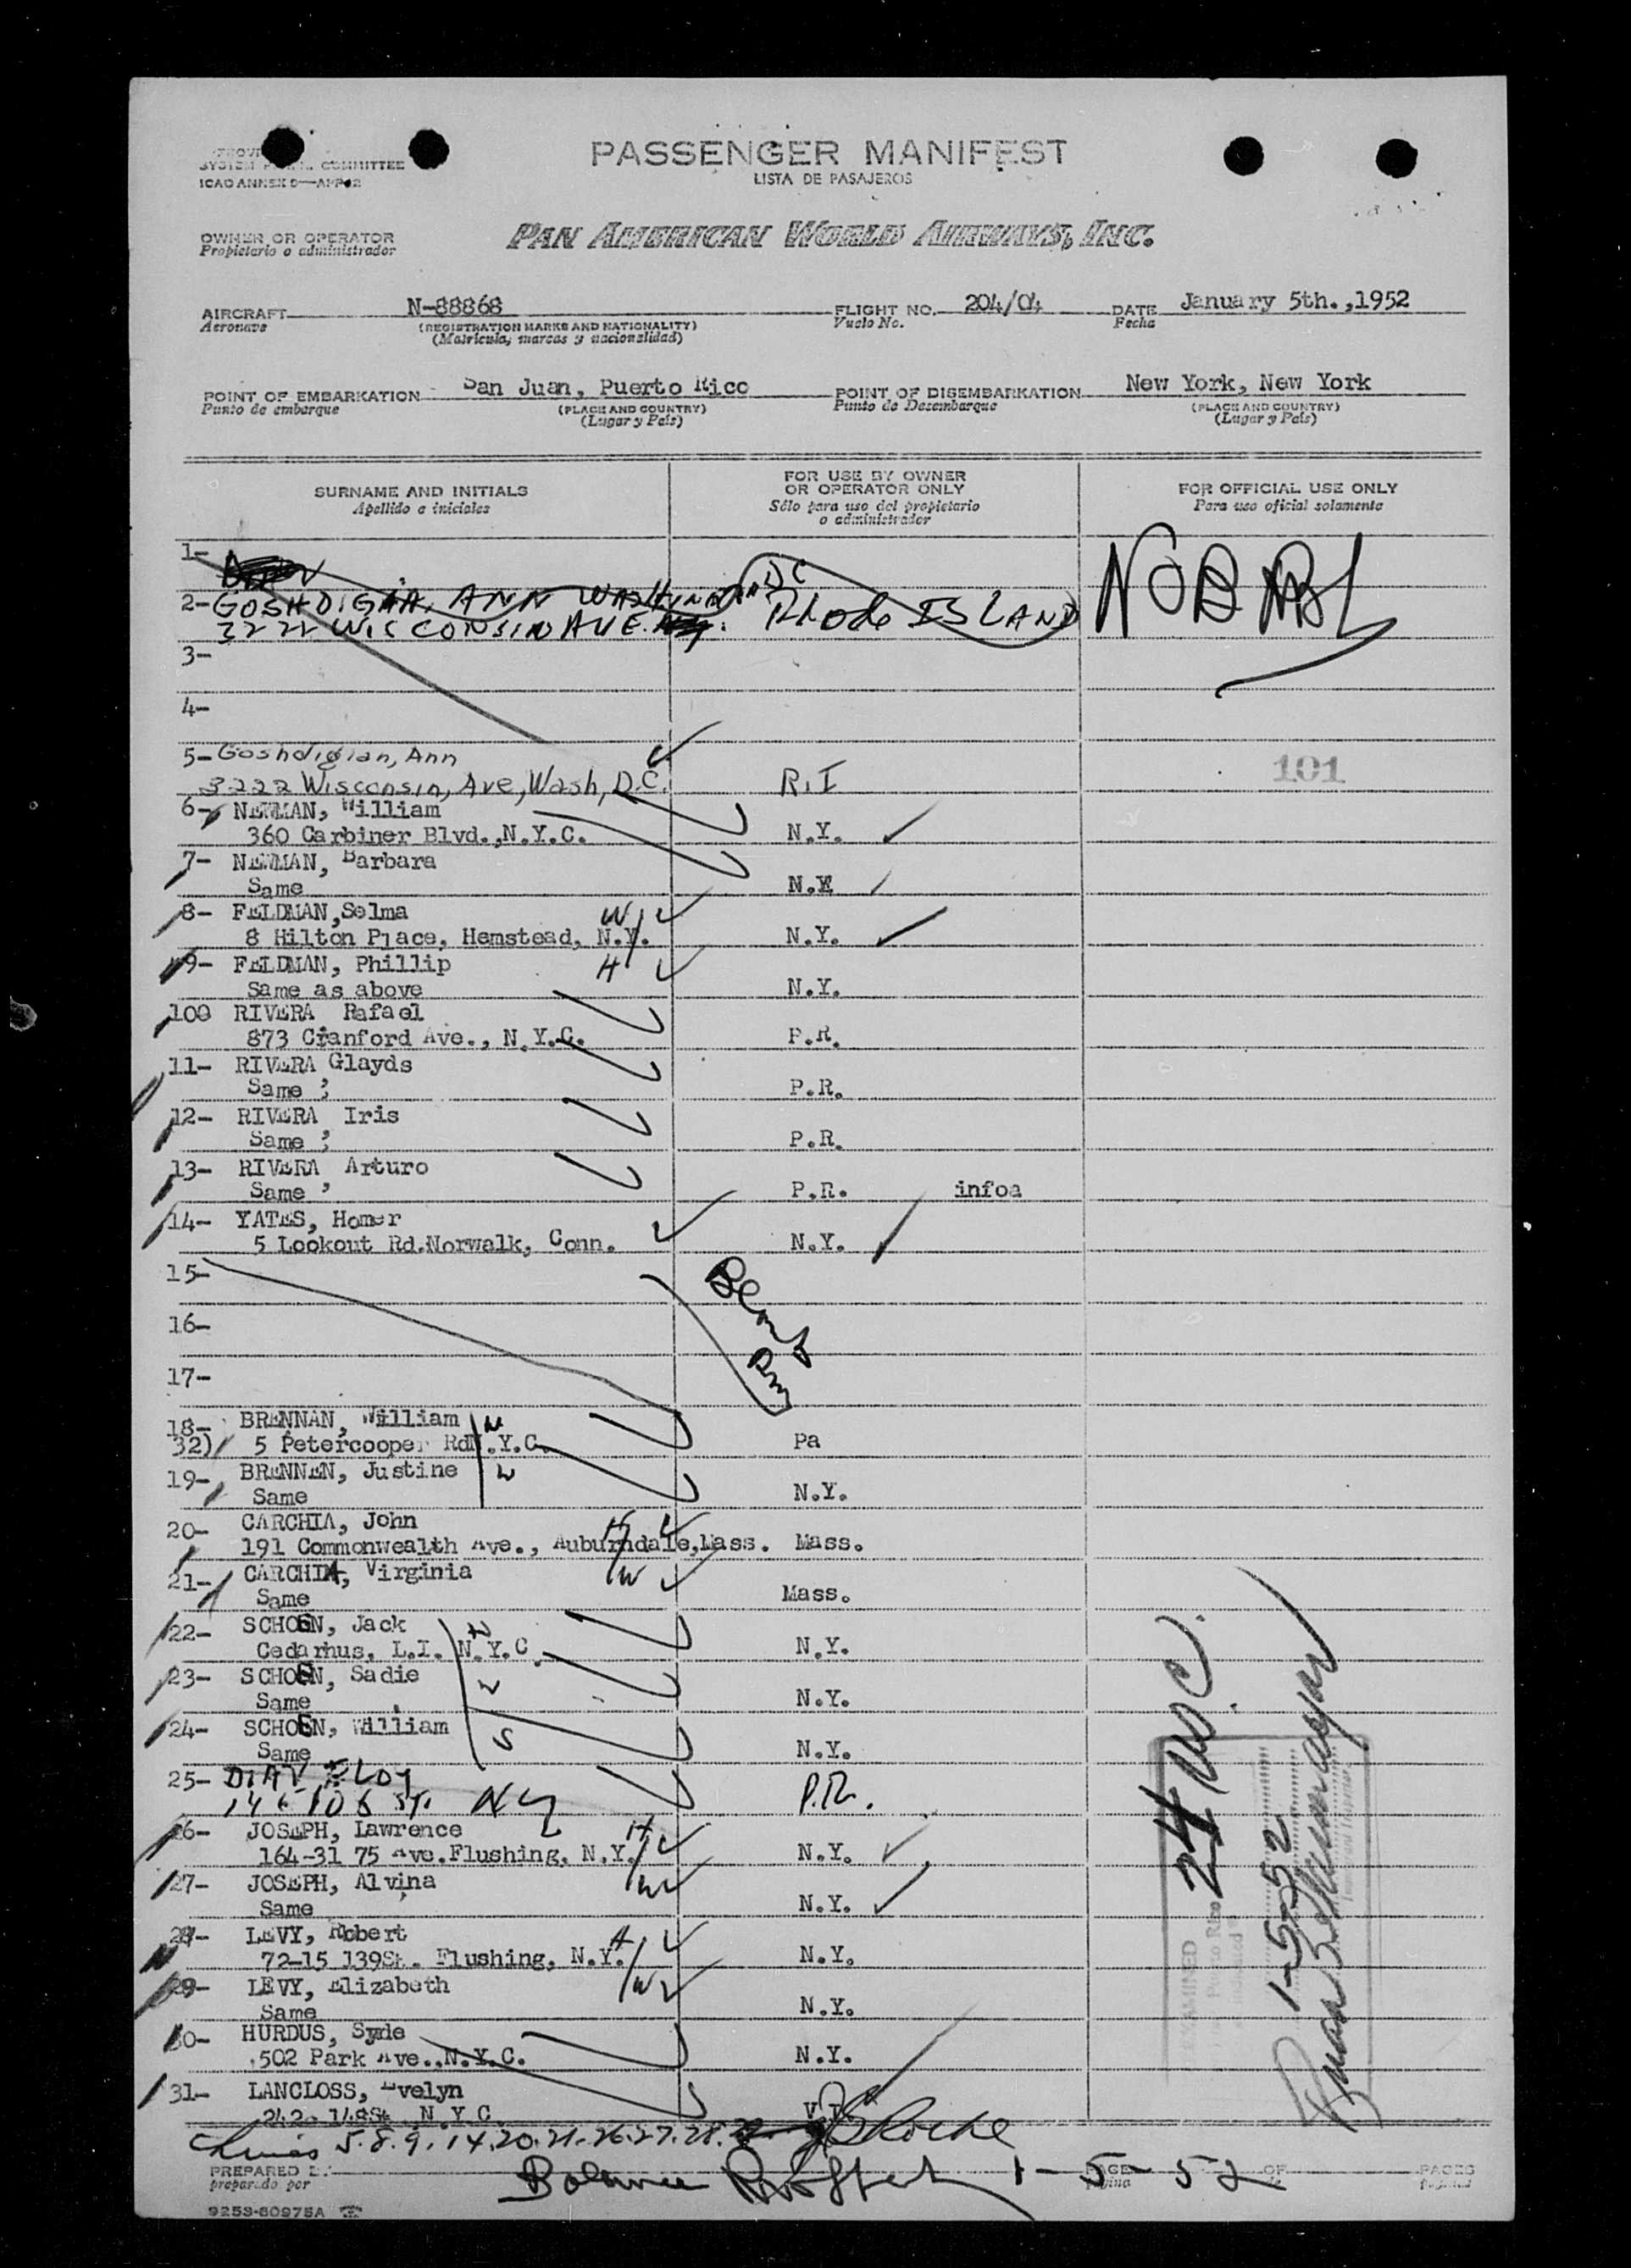 SYSTEM COMMITTEE
ICAO ANNEX 9—APP.2
PASSENGER MANIFEST
LISTA DE PASAJEROS
OWNER OR OPERATOR
Propietario o administrador
PAN AMERICAN WORLD AIRWAYS, INC.
AIRCRAFT N-88868 FLIGHT NO. 204/04 DATE January 5th.,1952
Aeronave (REGISTRATION MARKS AND NATIONALITY) Vuelo No. Fecha
(Matrícula, marcas y nacionalidad)
POINT OF EMBARKATION - San Juan, Puerto Rico POINT OF DISEMBARKATION New York, New York
Punto de embarque (PLACE AND COUNTRY) Punto de Desembarque (PLACE AND COUNTRY)
(Lugar y País) (Lugar y País)
SURNAME AND INITIALS FOR USE BY OWNER OR OPERATOR ONLY FOR OFFICIAL USE ONLY
Apellido e iniciales Sólo para uso del propietario o administrador Para uso oficial solamente
1-
2- GOSHDIGAA, ANN WASHINGTON DC
3222 WISCONSIN AVE. Rhode ISLAND
3-
4-
5- Goshdigian, Ann
3222 Wisconsin, Ave, Wash, D.C. R.I 101
6- NEWMAN, William
360 Carbiner Blvd.,N.Y.C. N.Y.
7- NEWMAN, Barbara
Same N.Y.
8- FELDMAN,Selma W
8 Hilton Place, Hemstead, N.Y. N.Y.
9- FELDMAN, Phillip H
Same as above N.Y.
100 RIVERA Rafael
873 Cranford Ave., N.Y.C. P.R.
11- RIVERA Glayds
Same ; P.R.
12- RIVERA Iris
Same ; P.R.
13- RIVERA Arturo
Same ' P.R. infoa
14- YATES, Homer
5 Lookout Rd.Norwalk, Conn. N.Y.
15-
16-
17-
18- BRENNAN, William
32) 5 Petercooper Rd N.Y.C. Pa
19- BRENNEN, Justine W
Same N.Y.
20- CARCHIA, John H
191 Commonwealth Ave., Auburndale,Mass. Mass.
21- CARCHIA, Virginia W
Same Mass.
22- SCHOEN, Jack
Cedarhus, L.I. N.Y.C. N.Y.
23- SCHOEN, Sadie
Same N.Y.
24- SCHOEN, William S
Same N.Y.
25- DIAZ, ELOY
NY P.R.
26- JOSEPH, Lawrence H
164-31 75 Ave.Flushing, N.Y. N.Y.
27- JOSEPH, Alvina W
Same N.Y.
LEVY, Robert H
72-15 139St. Flushing, N.Y. N.Y.
29- LEVY, Elizabeth W
Same N.Y.
30- HURDUS, Syde
502 Park Ave.,N.Y.C. N.Y.
31- LANCLOSS, Evelyn
242- 148St. N.Y.C.
EXAMINED
24
1-5-52
5.8.9.14.20.21.26.27.28.
PREPARED BY
preparado por
Balance 1-5-52
PAGE OF PAGES
9253-60975A